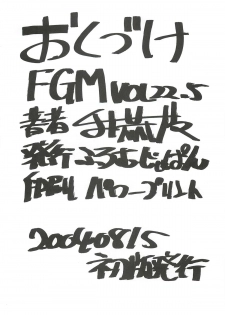 おくづけ
FGM VOL.22.5
著者
発行 ふろむじゃぱん
印刷 パワープリント
20040815
初版発行